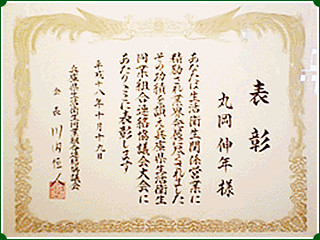 表彰
丸岡伸年様
あなたは生活衛生関係営業に
精励され業界発展に尽力されました
その功績を讃え兵庫県生活衛生
同業組合連絡協議会大会に
あたりここに表彰します
平成十八年十月十九日
兵庫県生活衛生同業組合連絡協議会
会長